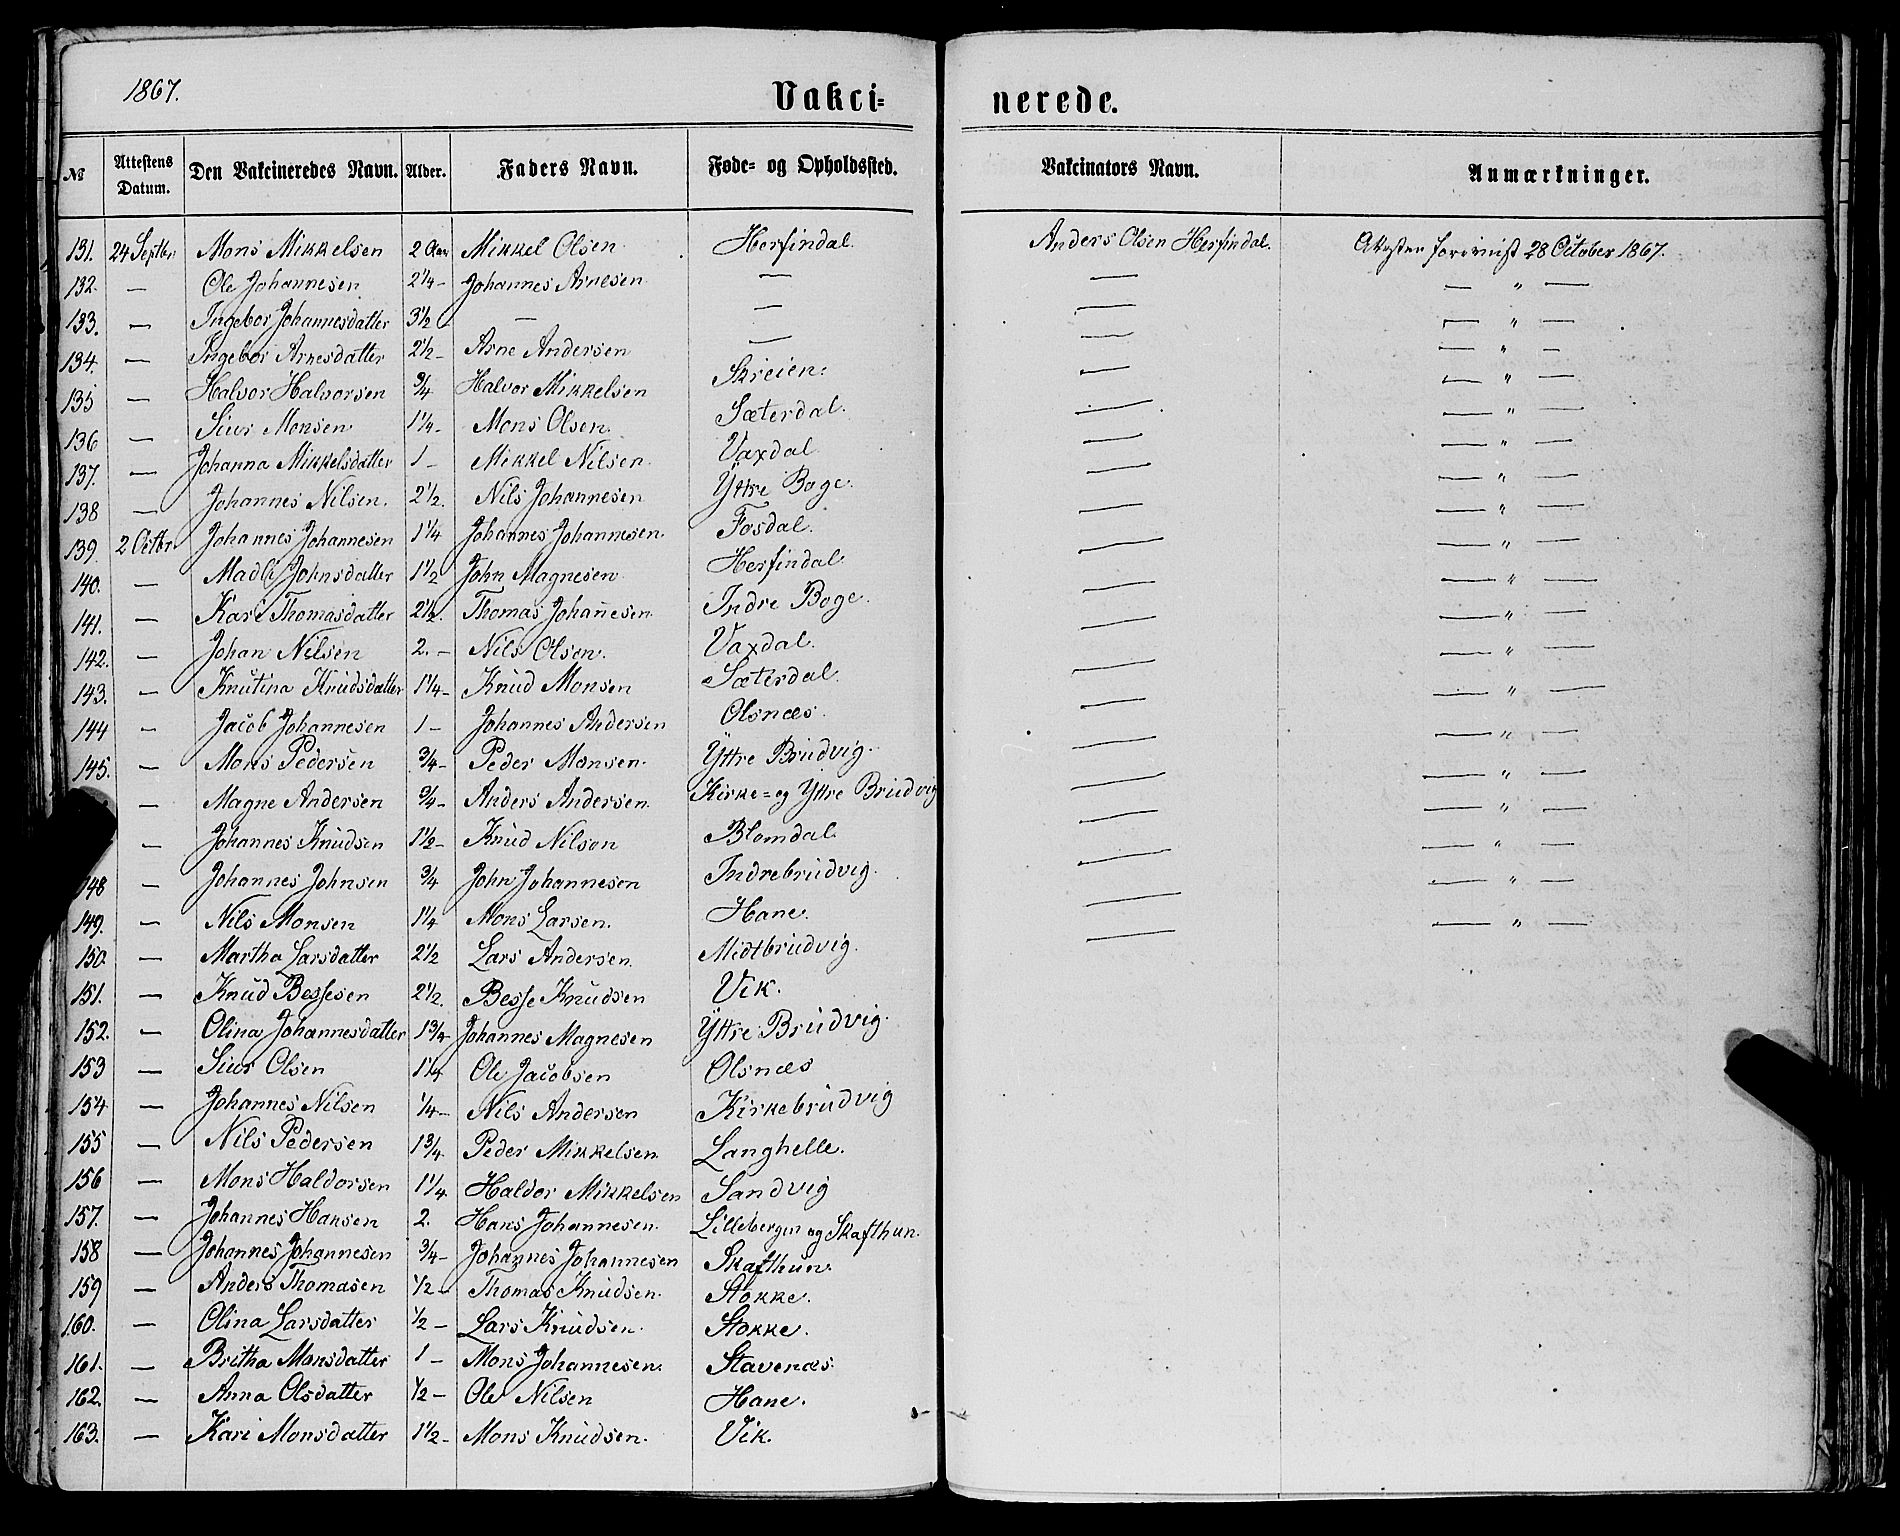 1867.
Vakci=nerede.
№ Attestens Datum. Den Vakcineredes Navn. Alder. Faders Navn. Føde= og Opholdssted. Vakcinators Navn. Anmærkninger.
131. 24 Septbr Mons Mikkelsen 2 Aar Mikkel Olsen Herfindal. Anders Olsen Herfindal. 28 October 1867.
132. — Ole Johannesen 2 1/4 - Johannes Arnesen — — — " —
133. — Ingebor Johannesdatter 3 1/2 — — — — " —
134. — Ingebor Arnesdatter 2 1/2 - Arne Andersen — — — " —
135 — Halvor Halvorsen 3/4 Halvor Mikkelsen Skreien. — — " —
136 — Siur Monsen 1 1/4 - Mons Olsen. Sæterdal. — — " —
137. — Johanna Mikkelsdatter 1 - Mikkel Nilsen. Vaxdal — — " —
138 — Johannes Nilsen. 2 1/2. Nils Johannesen Yttre Boge. — — " —
139. 2 Octbr Johannes Johannesen 1 1/4 Johannes Johannesen. Fosdal. — — " —
140. — Madli Johnsdatter 1 1/2 John Magnesen Herfindal — — " —
141. — Kari Thomasdatter 2 1/2. Thomas Johan̄esen. Indre Boge. — — " —
142. — Johan Nilsen 2. - Nils Olsen. Vaxdal. — — " —
143. — Knutina Knudsdatter 1 1/4 - Knud Monsen Sæterdal — — " —
144 — Jacob Johannesen 1 - Johannes Andersen Olsnæs. — — " —
145. — Mons Pedersen 3/4 - Peder Monsen. Yttre Brudvig. — — " —
— Magne Andersen 3/4 - Anders Andersen. Kirke= og Yttre Brudvig — — " —
— Johannes Knudsen 1 1/2 - Knud Nilsen Blomdal — — " —
148 — Johannes Johnsen 3/4 John Johannesen Indrebrudvig. — — " —
149. — Nils Monsen 1 1/4 Mons Larsen. Hane. — — " —
150. — Martha Larsdatter 2 1/2 Lars Andersen. Midtbrudvig. —
151. — Knud Bessesen 2 1/2. Besse Knudsen Vik.
152. — Olina Johannesdatter 1 3/4 - Johannes Magnesen Yttre Brudvig.
153 — Siur Olsen 1 1/4 Ole Jacobsen Olsnæs
154 — Johannes Nilsen 1/4 - Nils Andersen Kirkebrudvig
155 — Nils Pedersen 1 3/4. Peder Mikkelsen. Langhelle.
156 — Mons Haldorsen 1 1/4. Haldor Mikkelsen Sandvig
157. — Johannes Hansen 2. Hans Johannesen. Lillebergen og Skafthun.
158 — Johannes Johannesen 3/4 - Johannes Johannesen Skafthun.
159 — Anders Thomasen 1/2 - Thomas Knudsen. Stokke.
160. — Olina Larsdatter 1/2 - Lars Knudsen. Stokke.
161. — Britha Monsdatter 1 - Mons Johannesen. Stavenæs.
162. — Anna Olsdatter 1/2 - Ole Nilsen Hane.
163. — Kari Monsdatter 1 1/2 - Mons Knudsen. Vik.